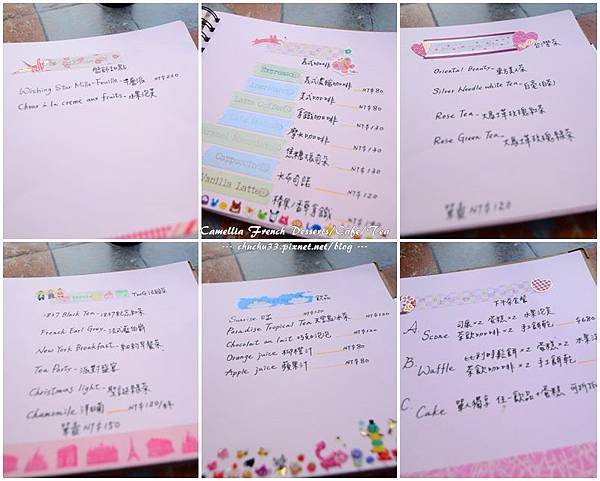 Wishing Star Mille-Feuille - 千層派 NT$200
Choux à la creme aux fruits - 水果泡芙
義式咖啡
Espresso 義式濃縮咖啡 NT$80
Americano 美式咖啡 NT$80
Latte Coffee 拿鐵咖啡 NT$130
摩卡咖啡 NT$130
焦糖瑪奇朵 NT$130
Cappuccino 卡布奇諾 NT$120
Vanilla Latte 榛果/香草拿鐵
台灣茶
Oriental Beauty - 東方美人茶
Silver Needle white Tea -
Rose Tea - 大馬士革玫瑰紅茶
Rose Green Tea - 大馬士革玫瑰綠茶
單壺 NT$120
Camellia French Desserts/Cafe/Tea
--- chuchu33.pixnet.net/blog ---
1837 Black Tea - 1837黑茶
French Earl Grey - 法式伯爵
New York Breakfast - 紐約早餐茶
Tea Party - 派對盛宴
Christmas light - 聖誕綠茶
Chamomile 洋甘菊 NT$120/杯
單壺 NT$150
飲品
Sunrise 日出 NT$120
Paradise Tropical Tea 大溪地冰茶 NT$120
Chocolat au lait 巧克力泡泡 NT$100
Orange juice 柳橙汁 NT$80
Apple juice 蘋果汁 NT$80
下午茶套餐
A. Scone 司康×2 蛋糕×2 水果泡芙
茶飲咖啡×2 手工餅乾 $680
B. Waffle 比利時鬆餅 蛋糕×2 水果
茶飲咖啡×2 手工餅乾
C. Cake 單人獨享 任一飲品+蛋糕 可折